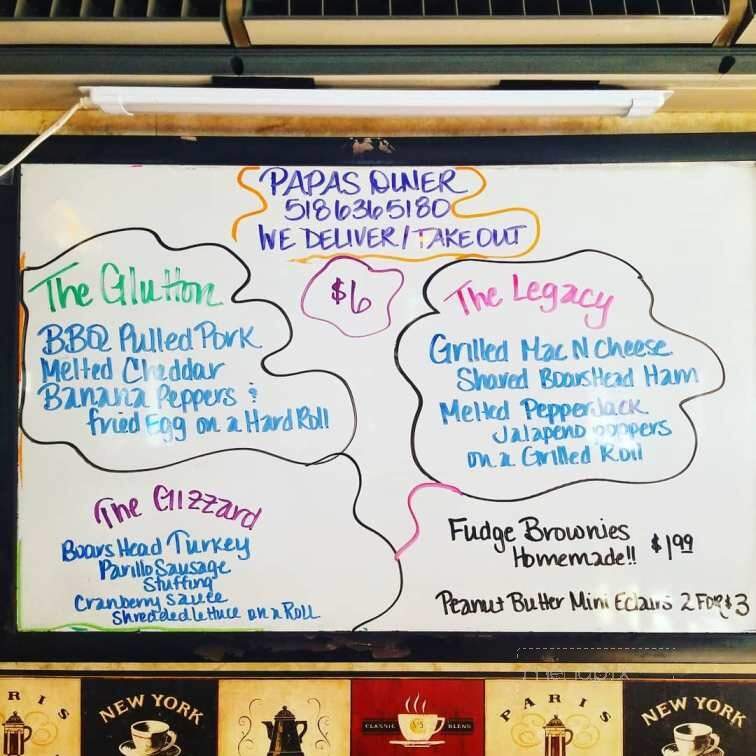 PAPAS DINER
5186365180
WE DELIVER/TAKEOUT
$6
The Glutton
BBQ Pulled Pork
Melted Cheddar
Banana Peppers &
fried Egg on a Hard Roll
The Legacy
Grilled Mac N Cheese
Shaved BoarsHead Ham
Melted PepperJack
Jalapeno poppers
on a Grilled Roll
The Glizzard
Boars Head Turkey
Parillo Sausage
Stuffing
Cranberry sauce
Shredded lettuce on a Roll
Fudge Brownies
Homemade!! $1.99
Peanut Butter Mini Eclairs 2 FOR $3
PARIS
NEW YORK
CLASSIC BLEND
PARIS
NEW YORK